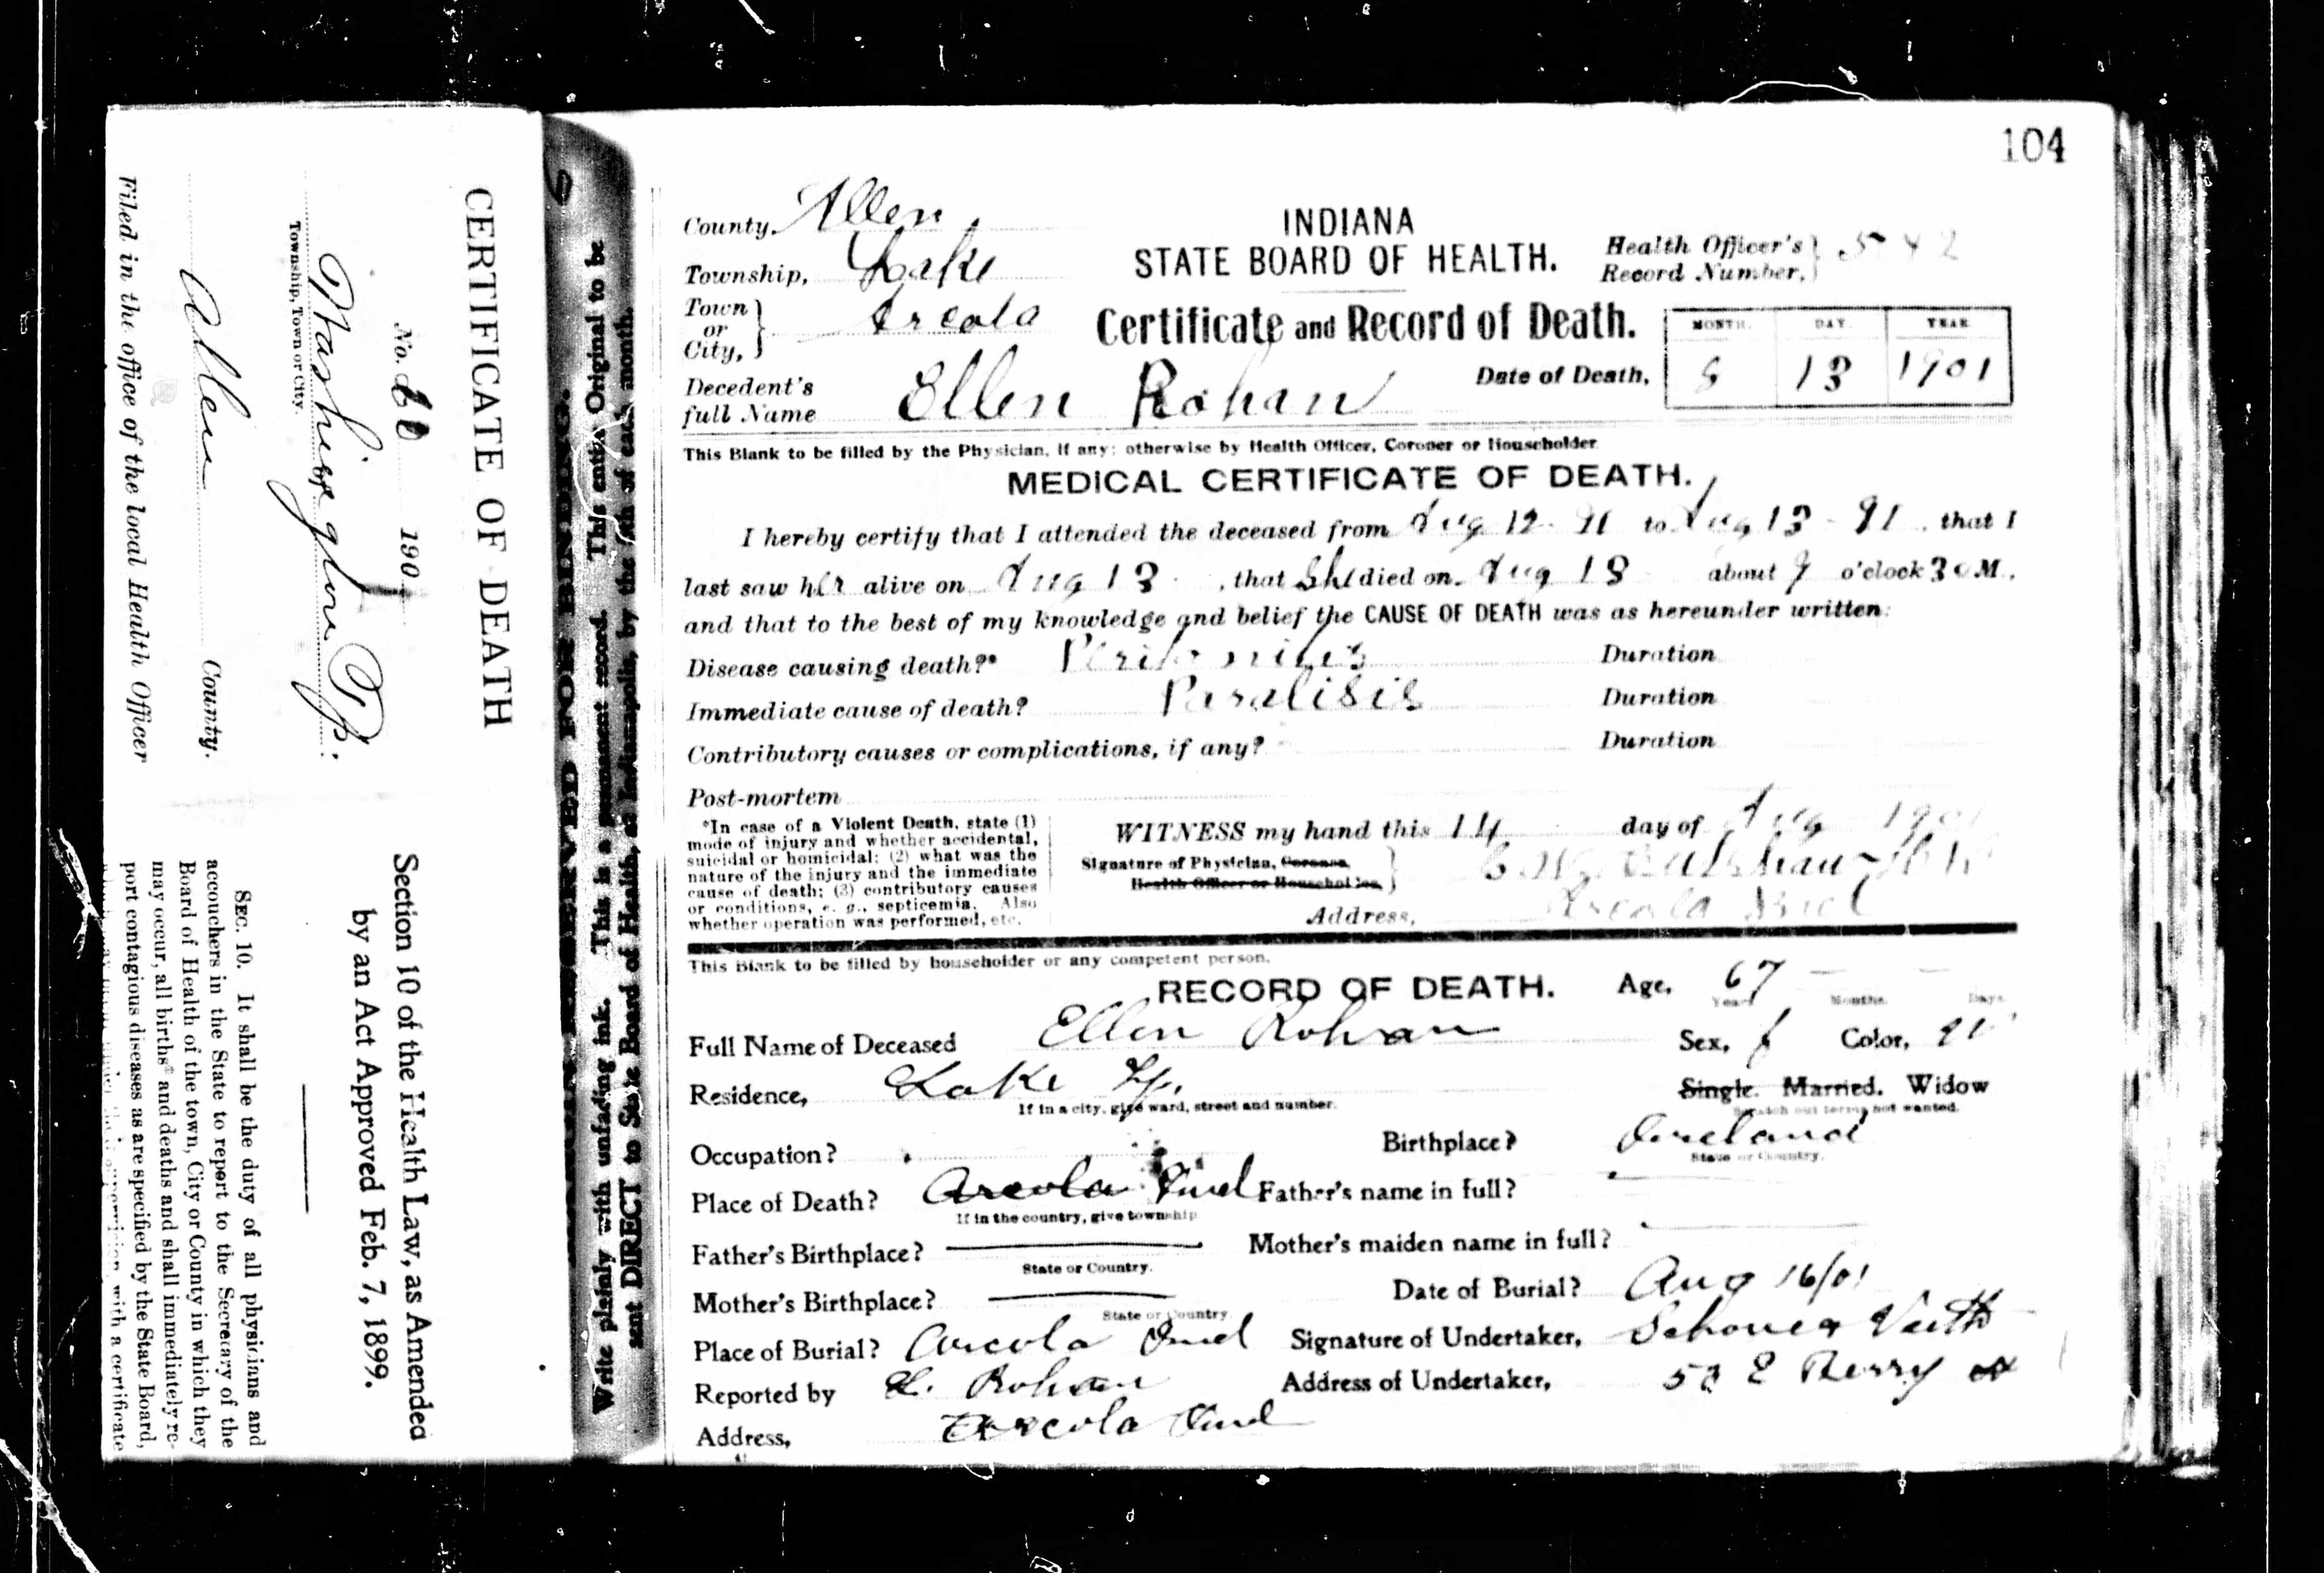 CERTIFICATE OF DEATH
No. 190
Washington Tp.
Township, Town or City.
Allen County.
Filed in the office of the local Health Officer
Section 10 of the Health Law, as Amended
by an Act Approved Feb. 7, 1899.
SEC. 10. It shall be the duty of all physicians and
accouchers in the State to report to the Secretary of the
Board of Health of the town, City or County in which they
may occur, all births* and deaths and shall immediately re-
port contagious diseases as are specified by the State Board,
with a certificate
Write plainly with unfading ink. This is a permanent record. This entire Original to be
sent DIRECT to State Board of Health, at Indianapolis, by the of each month.
104
County, Allen
Township, Lake
Town or City, Arcola
INDIANA
STATE BOARD OF HEALTH.
Health Officer's Record Number, 542
Certificate and Record of Death.
Date of Death,
MONTH. DAY. YEAR
8 13 1901
Decedent's full Name Ellen Rohan
This Blank to be filled by the Physician, if any; otherwise by Health Officer, Coroner or Householder.
MEDICAL CERTIFICATE OF DEATH.
I hereby certify that I attended the deceased from Aug 12 - to Aug 13 - , that I
last saw her alive on Aug 13 , that She died on Aug 13 about 9 o'clock 30 M.,
and that to the best of my knowledge and belief the CAUSE OF DEATH was as hereunder written:
Disease causing death?* Peritonites Duration
Immediate cause of death? Paralisis Duration
Contributory causes or complications, if any? Duration
Post-mortem
*In case of a Violent Death, state (1)
mode of injury and whether accidental,
suicidal or homicidal; (2) what was the
nature of the injury and the immediate
cause of death; (3) contributory causes
or conditions, e. g., septicemia. Also
whether operation was performed, etc.
WITNESS my hand this 14 day of Aug 1901
Signature of Physician, Coroner,
Health Officer or Householder,
Address, Arcola Ind
This Blank to be filled by householder or any competent person.
RECORD OF DEATH. Age, 67 — —
Years Months. Days.
Full Name of Deceased Ellen Rohan Sex, f Color, W
Residence, Lake Tp. Single. Married. Widow
If in a city, give ward, street and number. Scratch out terms not wanted.
Occupation? Birthplace? Ireland
State or Country.
Place of Death? Arcola Ind Father's name in full?
If in the country, give township
Father's Birthplace? Mother's maiden name in full?
State or Country.
Mother's Birthplace? Date of Burial? Aug 16/01
State or Country
Place of Burial? Arcola Ind Signature of Undertaker, Schone & Veith
Reported by Rohan Address of Undertaker, 52 E Berry st
Address, Arcola Ind